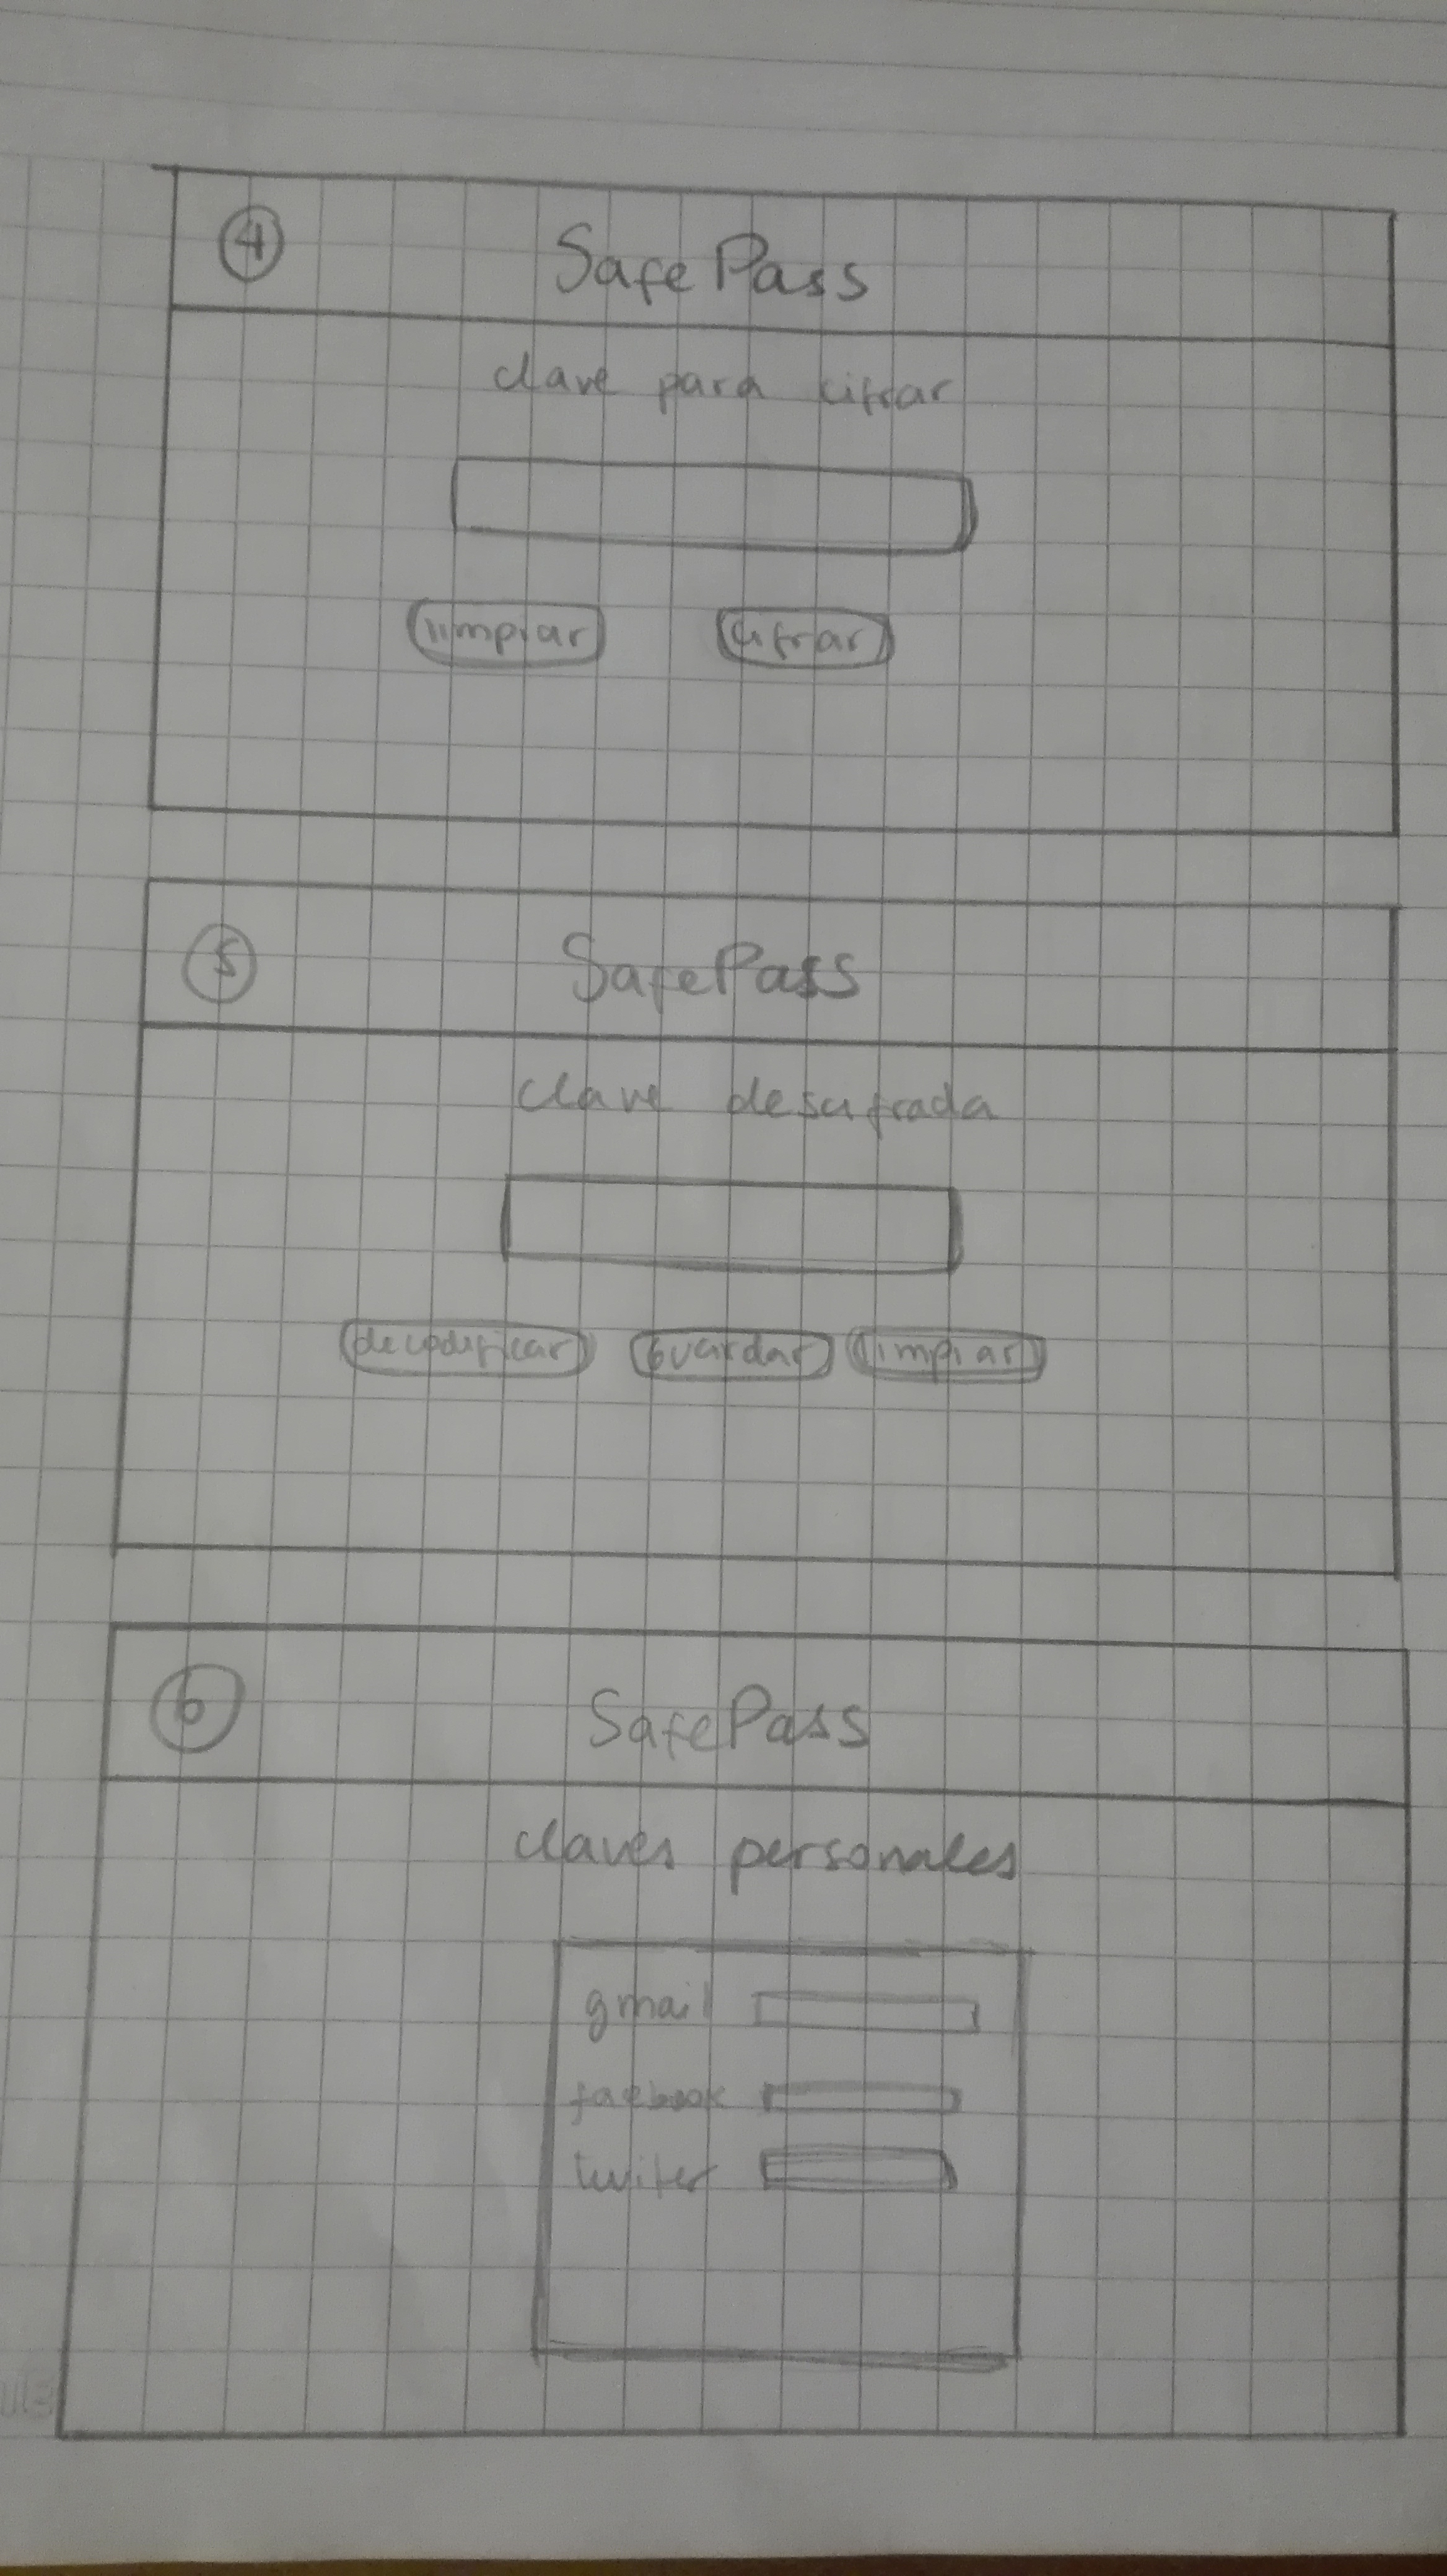 4
Safe Pass
clave para cifrar
limpiar
cifrar
5
SafePass
clave descifrada
decodificar
Guardar
limpiar
6
SafePass
claves personales
gmail
facebook
twiter